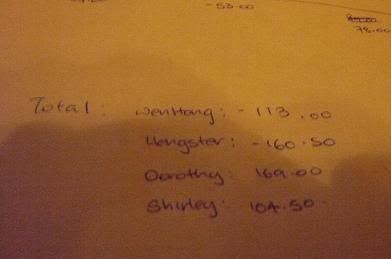 -53.00
78.00
Total: WenHong: -113.00
Hengster: -160.50
Dorothy: 169.00
Shirley: 104.50